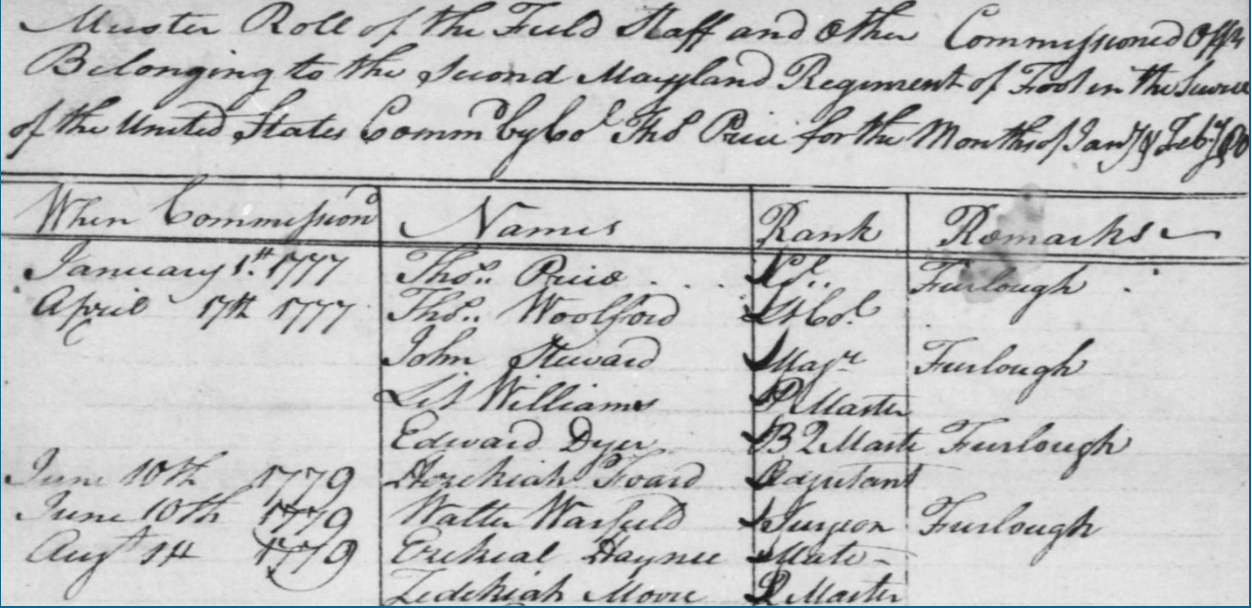 Muster Roll of the Field Staff and Other Commissioned Offrs
Belonging to the Second Maryland Regiment of Foot in the Service
of the United States Commd by Col Thos Price for the Months of Jany & Feby 80
When Commissiond Names Rank Remarks
January 1st 1777 Thos. Price Col. Furlough
April 17th 1777 Thos. Woolford Lt Col.
John Steward Majr Furlough
Lit Williams P Master
Edward Dyer B Q Maste Furlough
June 10th 1779 Hezekiah Foard Adjutant
June 10th 1779 Walter Warfield Surgeon Furlough
Augt 14 1779 Ezekial Haynee Mate
Zedekiah Moore Q Master